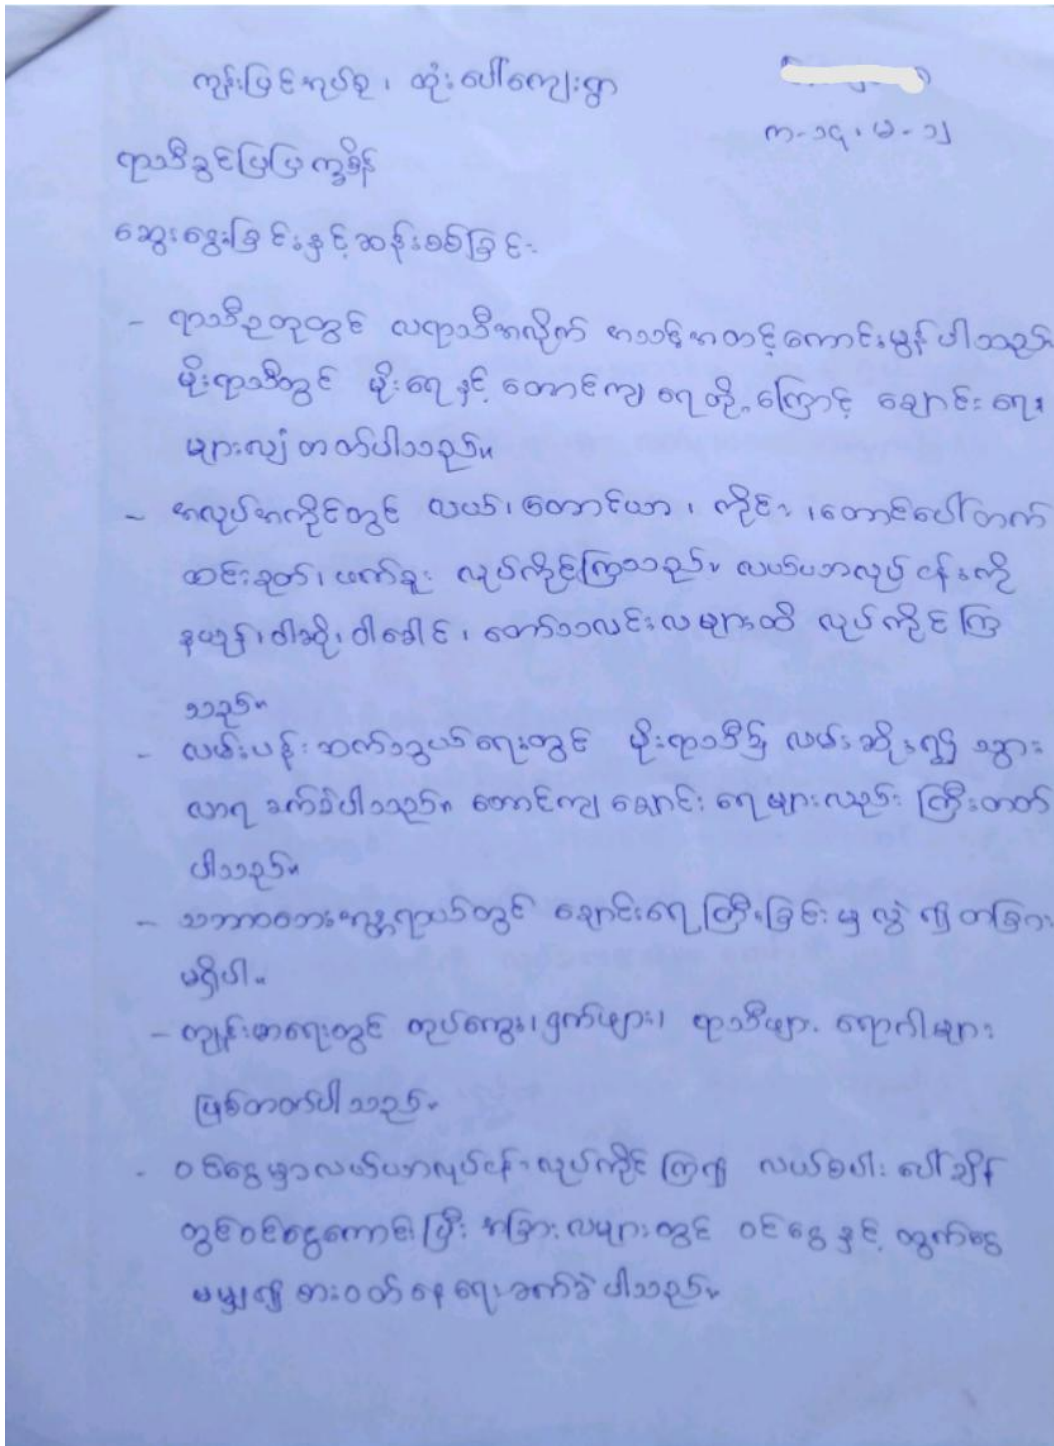 ကုန်းမြင့်အုပ်စု၊ ထုံးပေါ်ကျေးရွာ
က-၁၄၊ မ-၁၂
ရာသီခွင်ပြပြက္ခဒိန်
ဆွေးနွေးခြင်းနှင့်ဆန်းစစ်ခြင်း
- ရာသီဥတုတွင် လရာသီအလိုက် အသင့်အတင့်ကောင်းမွန်ပါသည်။
မိုးရာသီတွင် မိုးရေနှင့် တောင်ကျရေတို့ကြောင့် ချောင်းရေ
များလျှံတတ်ပါသည်။
- အလုပ်အကိုင်တွင် လယ်၊ တောင်ယာ၊ ကိုင်း၊ တောင်ပေါ်တက်
ထင်းခုတ်၊ ဖက်ခူး လုပ်ကိုင်ကြသည်။ လယ်ယာလုပ်ငန်းကို
နယုန်၊ ဝါဆို၊ ဝါခေါင်၊ တော်သလင်းလများထိ လုပ်ကိုင်ကြ
သည်။
- လမ်းပန်းဆက်သွယ်ရေးတွင် မိုးရာသီ၌ လမ်းဆိုး၍ သွား
လာရ ခက်ခဲပါသည်။ တောင်ကျချောင်းရေများလည်း ကြီးတတ်
ပါသည်။
- သဘာဝဘေးအန္တရာယ်တွင် ချောင်းရေကြီးခြင်းမှလွဲ၍ တခြား
မရှိပါ။
- ကျန်းမာရေးတွင် တုပ်ကွေး၊ ငှက်ဖျား၊ ရာသီဖျား ရောဂါများ
ဖြစ်တတ်ပါသည်။
- ဝင်ငွေမှာလယ်ယာလုပ်ငန်းလုပ်ကိုင်ကြ၍ လယ်စပါးပေါ်ချိန်
တွင်ဝင်ငွေကောင်းပြီး အခြားလများတွင် ဝင်ငွေနှင့် ထွက်ငွေ
မမျှ၍ စားဝတ်နေရေးခက်ခဲပါသည်။